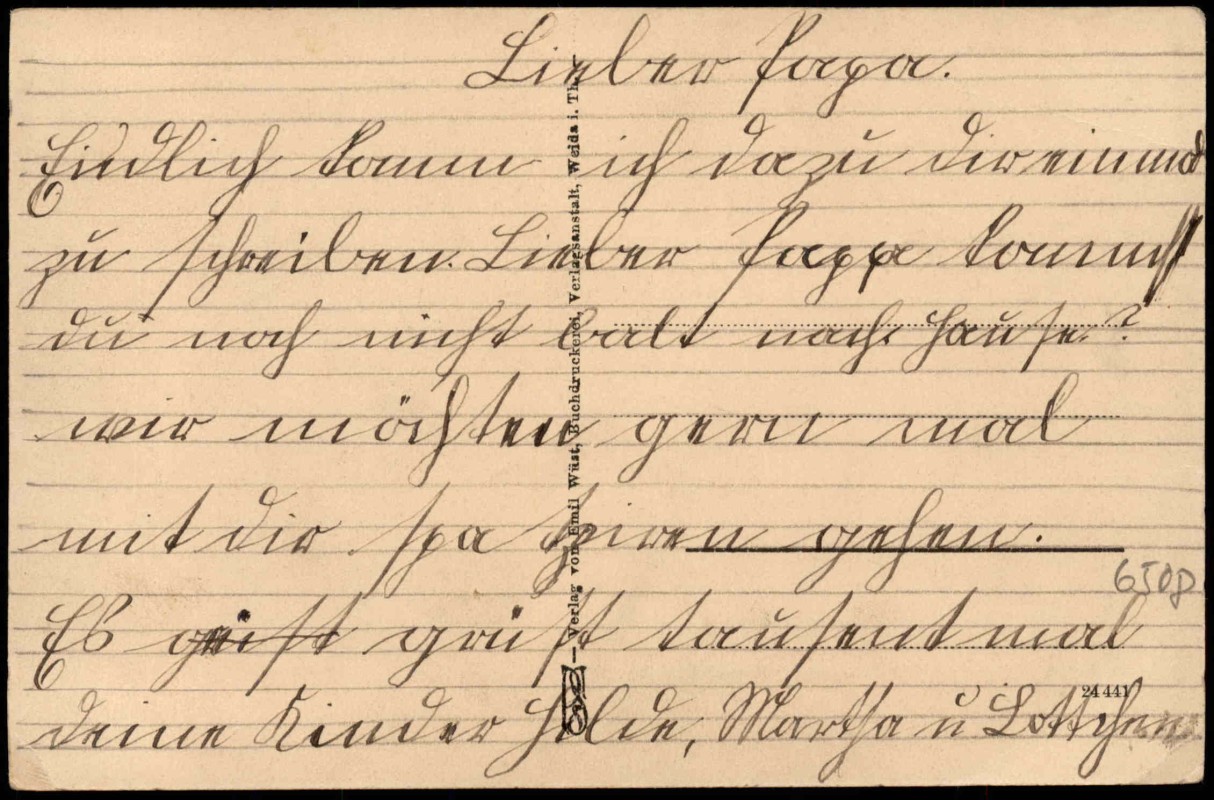 Lieber Papa.
Endlich komm ich dazu dir einmal
zu schreiben. Lieber Papa kommst
du noch nicht balt nach Hause?
wir möchten gern mal
mit dir spaziren gehen.
6508
Es geist grüst tausent mal
24441
deine Kinder Hilde, Martha u Lottchen
— Verlag von Emil Wüst, Buchdruckerei, Verlagsanstalt, Weida i. Th.